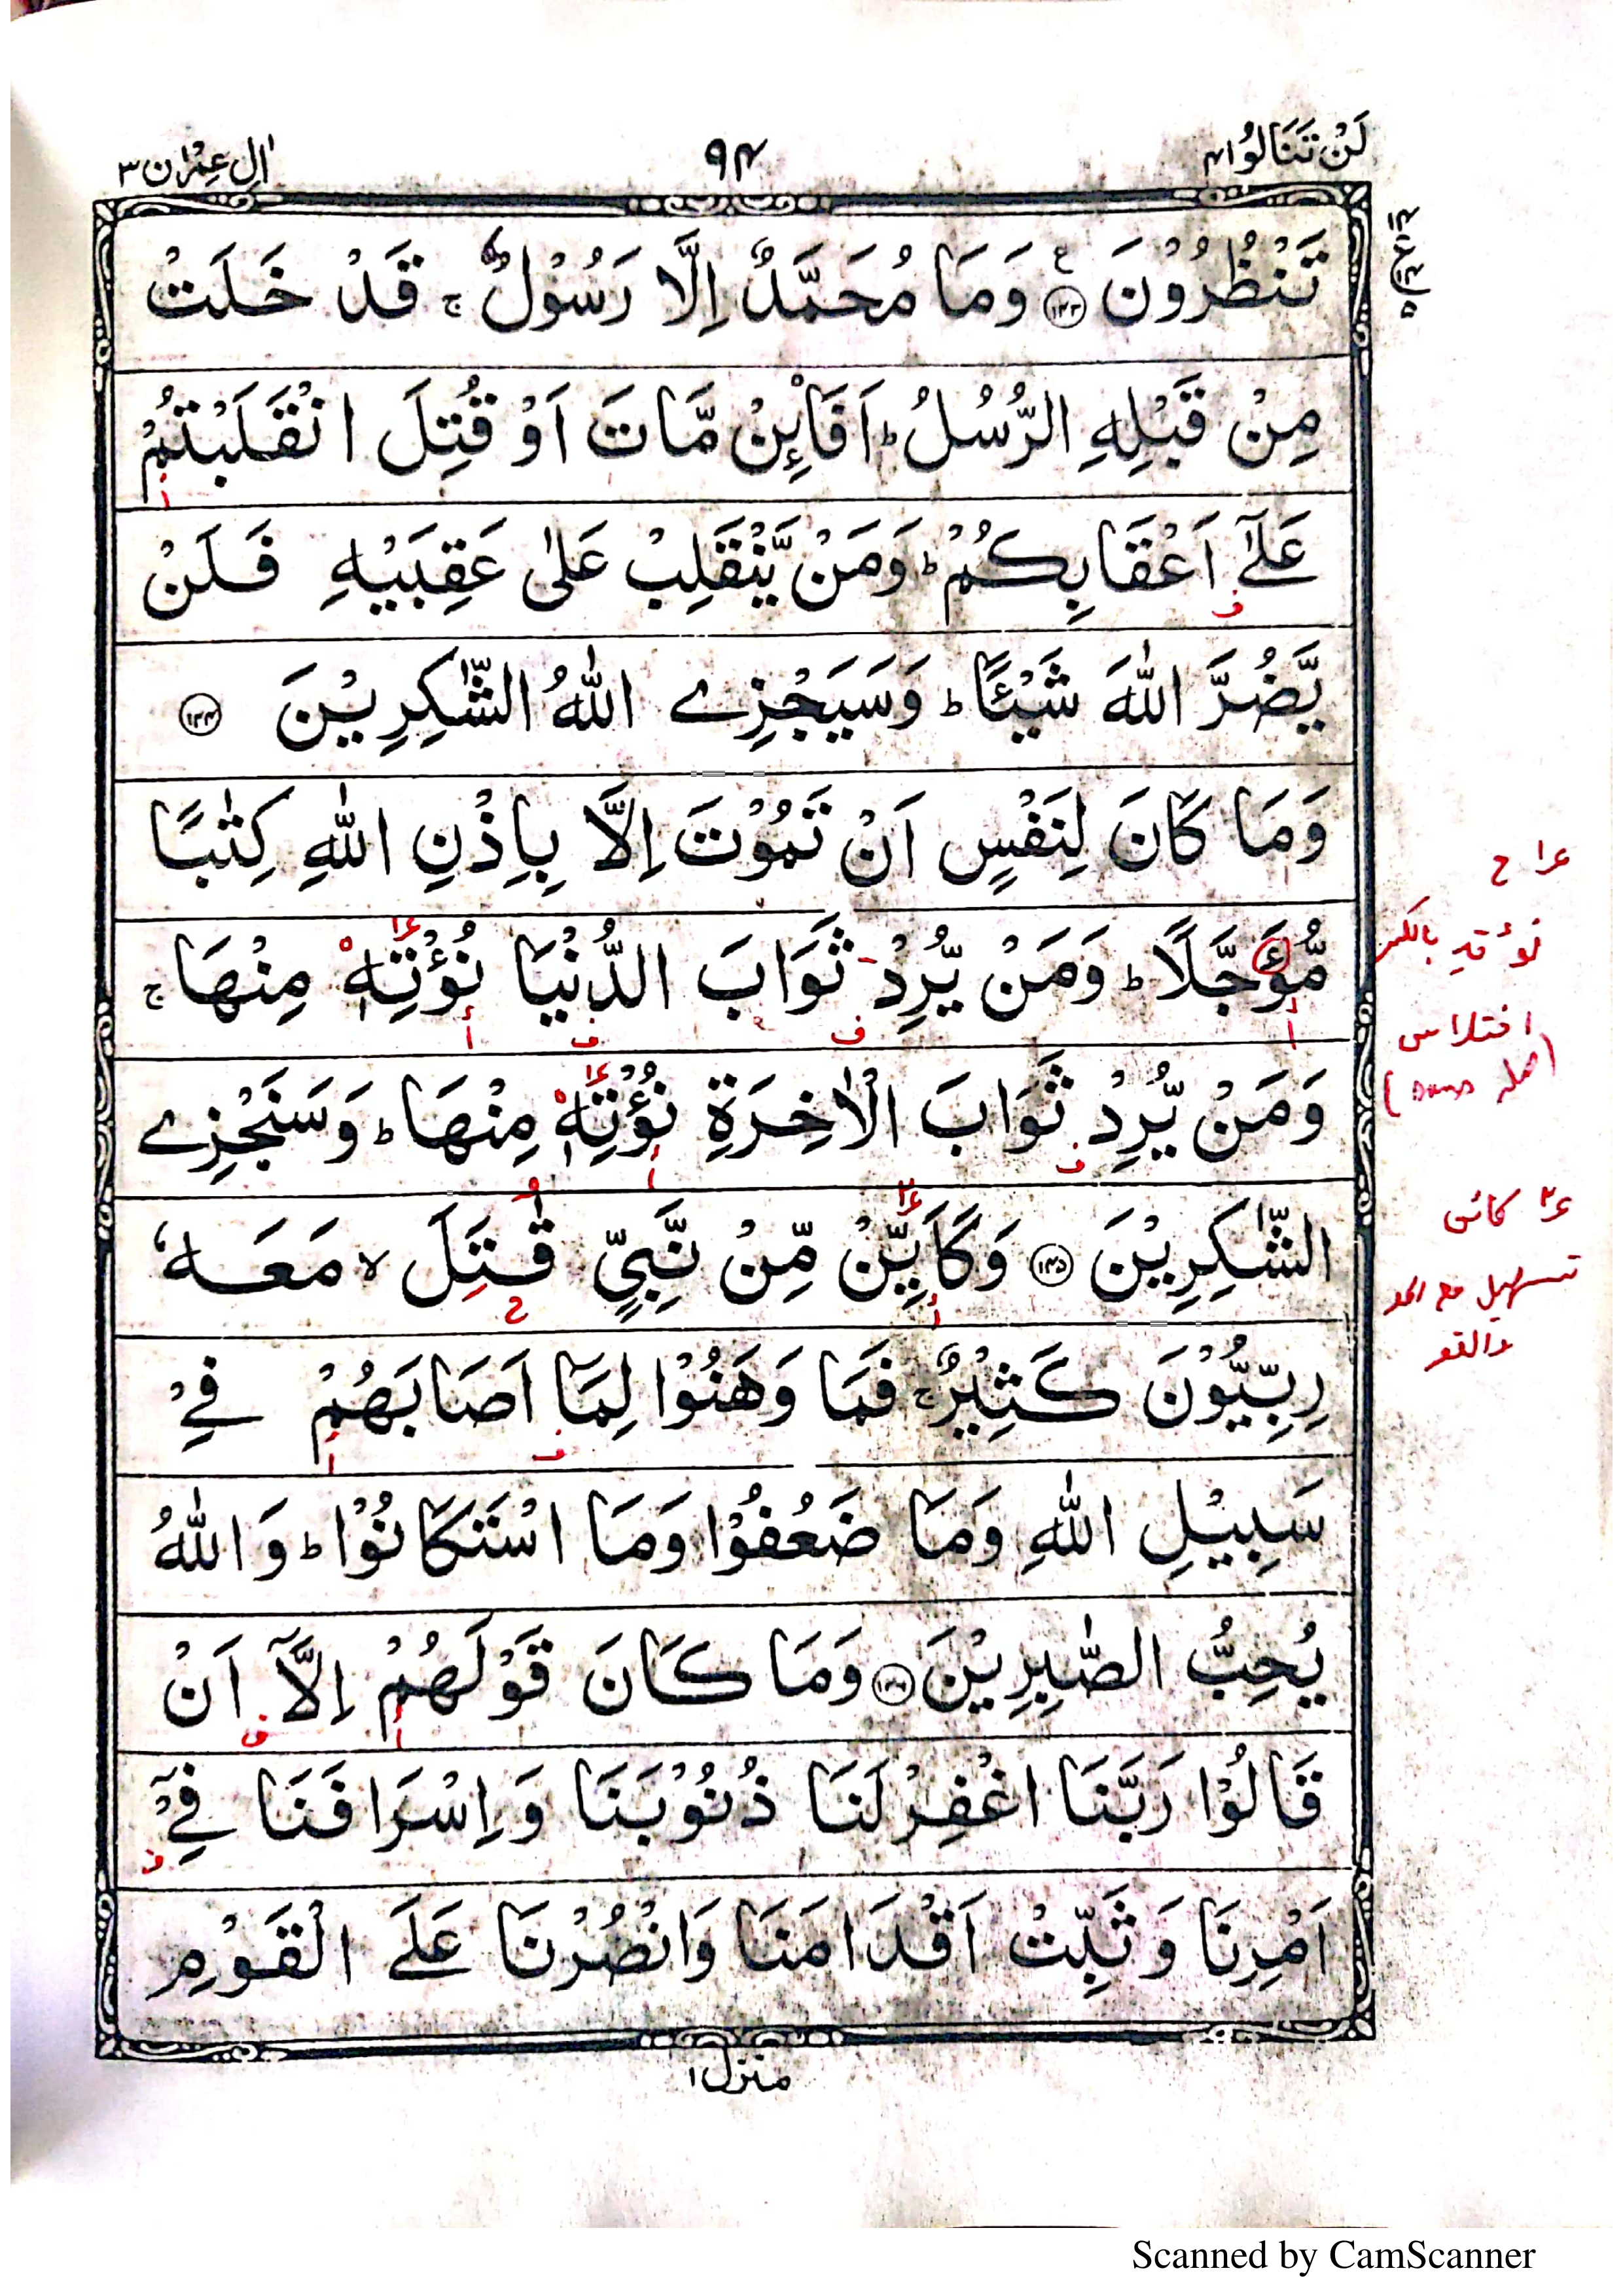 لَنْ تَنَالُوا ۴
۹۴
اٰلِ عِمْرٰن ۳
تَنْظُرُوْنَ ۝۱۴۳ وَمَا مُحَمَّدٌ اِلَّا رَسُوْلٌ ۚ قَدْ خَلَتْ
مِنْ قَبْلِهِ الرُّسُلُ ؕ اَفَا۟ئِنْ مَّاتَ اَوْ قُتِلَ انْقَلَبْتُمْ
عَلٰٓى اَعْقَابِكُمْ ؕ وَمَنْ يَّنْقَلِبْ عَلٰى عَقِبَيْهِ فَلَنْ
يَّضُرَّ اللّٰهَ شَيْئًا ؕ وَسَيَجْزِے اللّٰهُ الشّٰكِرِيْنَ ۝۱۴۴
وَمَا كَانَ لِنَفْسٍ اَنْ تَمُوْتَ اِلَّا بِاِذْنِ اللّٰهِ كِتٰبًا
مُّؤَجَّلًا ؕ وَمَنْ يُّرِدْ ثَوَابَ الدُّنْيَا نُؤْتِهٖ مِنْهَا ۚ
وَمَنْ يُّرِدْ ثَوَابَ الْاٰخِرَةِ نُؤْتِهٖ مِنْهَا ؕ وَسَنَجْزِے
الشّٰكِرِيْنَ ۝۱۴۵ وَكَاَيِّنْ مِّنْ نَّبِيٍّ قٰتَلَ ۙ مَعَهٗ
رِبِّيُّوْنَ كَثِيْرٌ ۚ فَمَا وَهَنُوْا لِمَاۤ اَصَابَهُمْ فِيْ
سَبِيْلِ اللّٰهِ وَمَا ضَعُفُوْا وَمَا اسْتَكَانُوْا ؕ وَاللّٰهُ
يُحِبُّ الصّٰبِرِيْنَ ۝۱۴۶ وَمَا كَانَ قَوْلَهُمْ اِلَّاۤ اَنْ
قَالُوْا رَبَّنَا اغْفِرْ لَنَا ذُنُوْبَنَا وَاِسْرَافَنَا فِيْۤ
اَمْرِنَا وَثَبِّتْ اَقْدَامَنَا وَانْصُرْنَا عَلَى الْقَوْمِ
اختلاس
تسهيل مع المد
والقصر
منزل ۱
Scanned by CamScanner